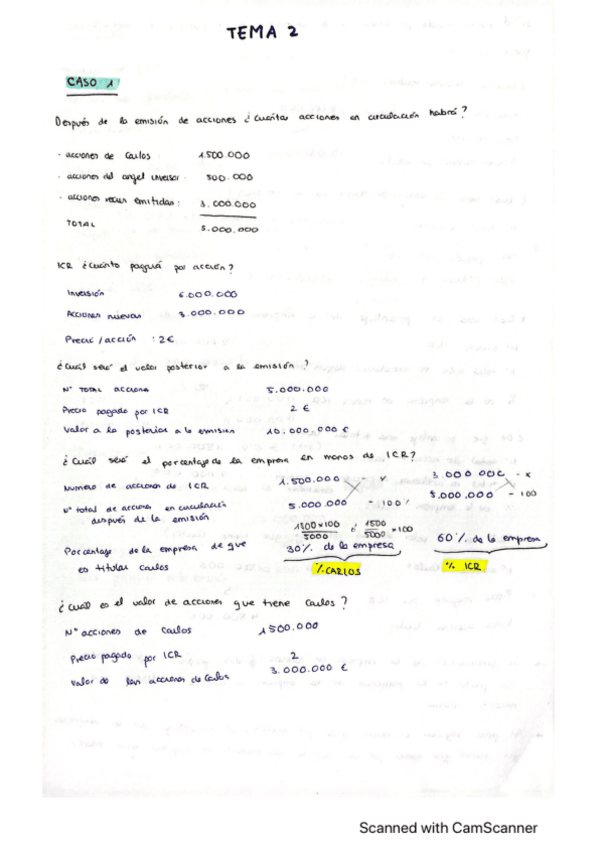 TEMA 2
CASO 1
Después de la emisión de acciones ¿cuántas acciones en circulación habrá?
- acciones de Carlos 1.500.000
- acciones del angel inversor: 500.000
- acciones nuevas emitidas: 3.000.000
TOTAL 5.000.000
ICR ¿cuánto pagará por acción?
Inversión 6.000.000
Acciones nuevas 3.000.000
Precio / acción : 2€
¿Cuál será el valor posterior a la emisión?
Nº TOTAL acciones 5.000.000
Precio pagado por ICR 2 €
Valor a lo posterior a la emisión 10.000.000 €
¿Cuál será el porcentaje de la empresa en manos de ICR?
Numero de acciones de ICR 1.500.000 x 3.000.000 - x
Nº total de acciones en circulación 5.000.000 - 100% 5.000.000 - 100
después de la emisión
1500×100/5000 ó 1500/5000 ×100
Porcentage de la empresa de que 30% de la empresa 60% de la empresa
es titular Carlos % CARLOS % ICR
¿Cuál es el valor de acciones que tiene Carlos?
Nº acciones de Carlos 1500.000
Precio pagado por ICR 2
Valor de las acciones de Carlos 3.000.000 €
Scanned with CamScanner